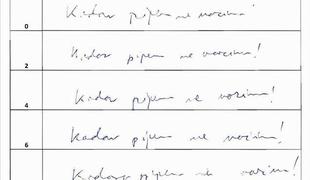 0 Kadar pijem ne vozim!
2 Kadar pijem ne vozim!
4 Kadar pijem ne vozim!
6 Kadar pijem ne vozim!
Kadar pijem ne vozim!